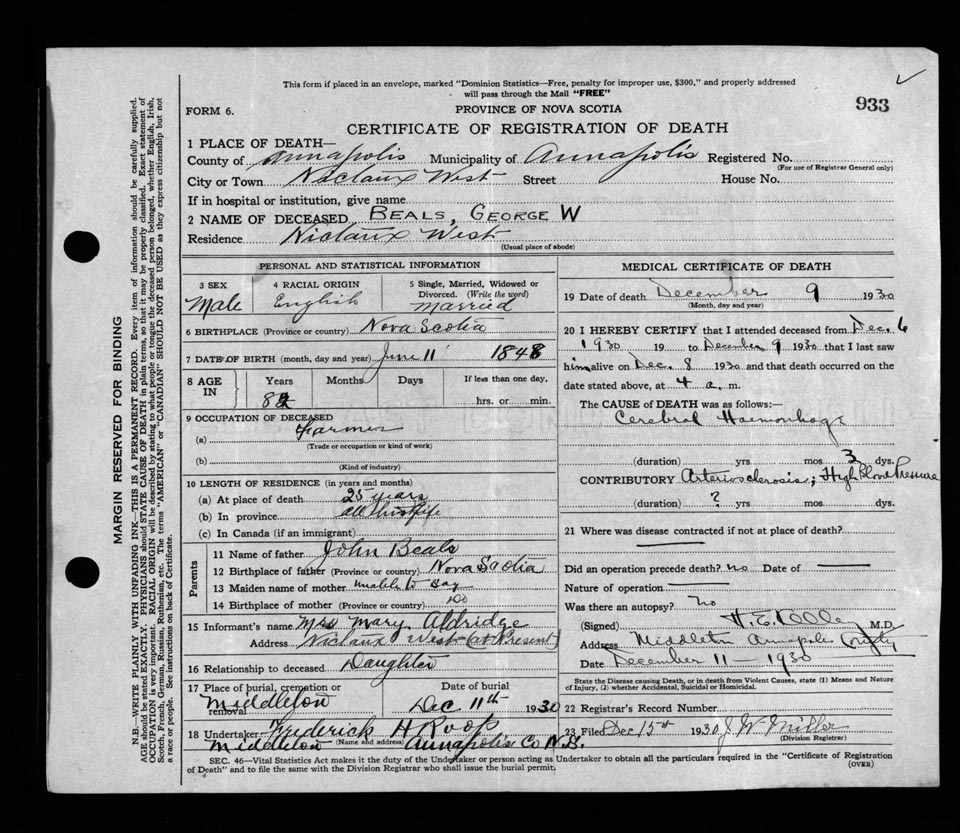 This form if placed in an envelope, marked "Dominion Statistics—Free, penalty for improper use, $300," and properly addressed
will pass through the Mail "FREE"
933
FORM 6.
PROVINCE OF NOVA SCOTIA
CERTIFICATE OF REGISTRATION OF DEATH
1 PLACE OF DEATH—
County of Annapolis Municipality of Annapolis Registered No.
(For use of Registrar General only)
City or Town Nictaux West Street House No.
If in hospital or institution, give name
2 NAME OF DECEASED BEALS, GEORGE W
Residence Nictaux West
(Usual place of abode)
PERSONAL AND STATISTICAL INFORMATION
3 SEX 4 RACIAL ORIGIN 5 Single, Married, Widowed or
Divorced. (Write the word)
Male English Married
6 BIRTHPLACE (Province or country) Nova Scotia
7 DATE OF BIRTH (month, day and year) June 11 1848
8 AGE IN Years Months Days If less than one day,
82 hrs. or min.
9 OCCUPATION OF DECEASED
(a) Farmer
(Trade or occupation or kind of work)
(b)
(Kind of industry)
10 LENGTH OF RESIDENCE (in years and months)
(a) At place of death 25 years
(b) In province all his life
(c) In Canada (if an immigrant)
Parents
11 Name of father John Beals
12 Birthplace of father (Province or country) Nova Scotia
13 Maiden name of mother unable to say
14 Birthplace of mother (Province or country) do
15 Informant's name Mrs Mary Aldridge
Address Nictaux West (at Present)
16 Relationship to deceased Daughter
17 Place of burial, cremation or removal Middleton
Date of burial Dec 11th 1930
18 Undertaker Frederick H Roop
(Name and address) Middleton Annapolis Co N.S.
MEDICAL CERTIFICATE OF DEATH
19 Date of death December 9 1930
(Month, day and year)
20 I HEREBY CERTIFY that I attended deceased from Dec. 6
1930 19 to December 9 1930 that I last saw
him alive on Dec. 8 1930 and that death occurred on the
date stated above, at 4 a. m.
The CAUSE of DEATH was as follows:—
Cerebral Haemorrhage
(duration) yrs mos 3 dys.
CONTRIBUTORY Arteriosclerosis; High Blood Pressure
(duration) ? yrs mos dys.
21 Where was disease contracted if not at place of death?
Did an operation precede death? no Date of
Nature of operation
Was there an autopsy? No
(Signed) M.D.
Address Middleton Annapolis County
Date December 11 — 1930
State the Disease causing Death, or in death from Violent Causes, state (1) Means and Nature
of Injury, (2) whether Accidental, Suicidal or Homicidal.
22 Registrar's Record Number
23 Filed Dec 15th 1930 J W Miller
(Division Registrar)
SEC. 46—Vital Statistics Act makes it the duty of the Undertaker or person acting as Undertaker to obtain all the particulars required in the "Certificate of Registration
of Death" and to file the same with the Division Registrar who shall issue the burial permit.
(OVER)
MARGIN RESERVED FOR BINDING
N.B.—WRITE PLAINLY WITH UNFADING INK—THIS IS A PERMANENT RECORD. Every item of information should be carefully supplied.
AGE should be stated EXACTLY. PHYSICIANS should STATE CAUSE OF DEATH in plain terms, so that it may be properly classified. Exact statement of
OCCUPATION is very important. RACIAL ORIGIN will be described by stating to what people or tongue the deceased person belonged, whether English, Irish,
Scotch, French, German, Russian, Ruthenian, etc. The terms "AMERICAN" or "CANADIAN" SHOULD NOT BE USED as they express citizenship but not
a race or people. See instructions on back of Certificate.